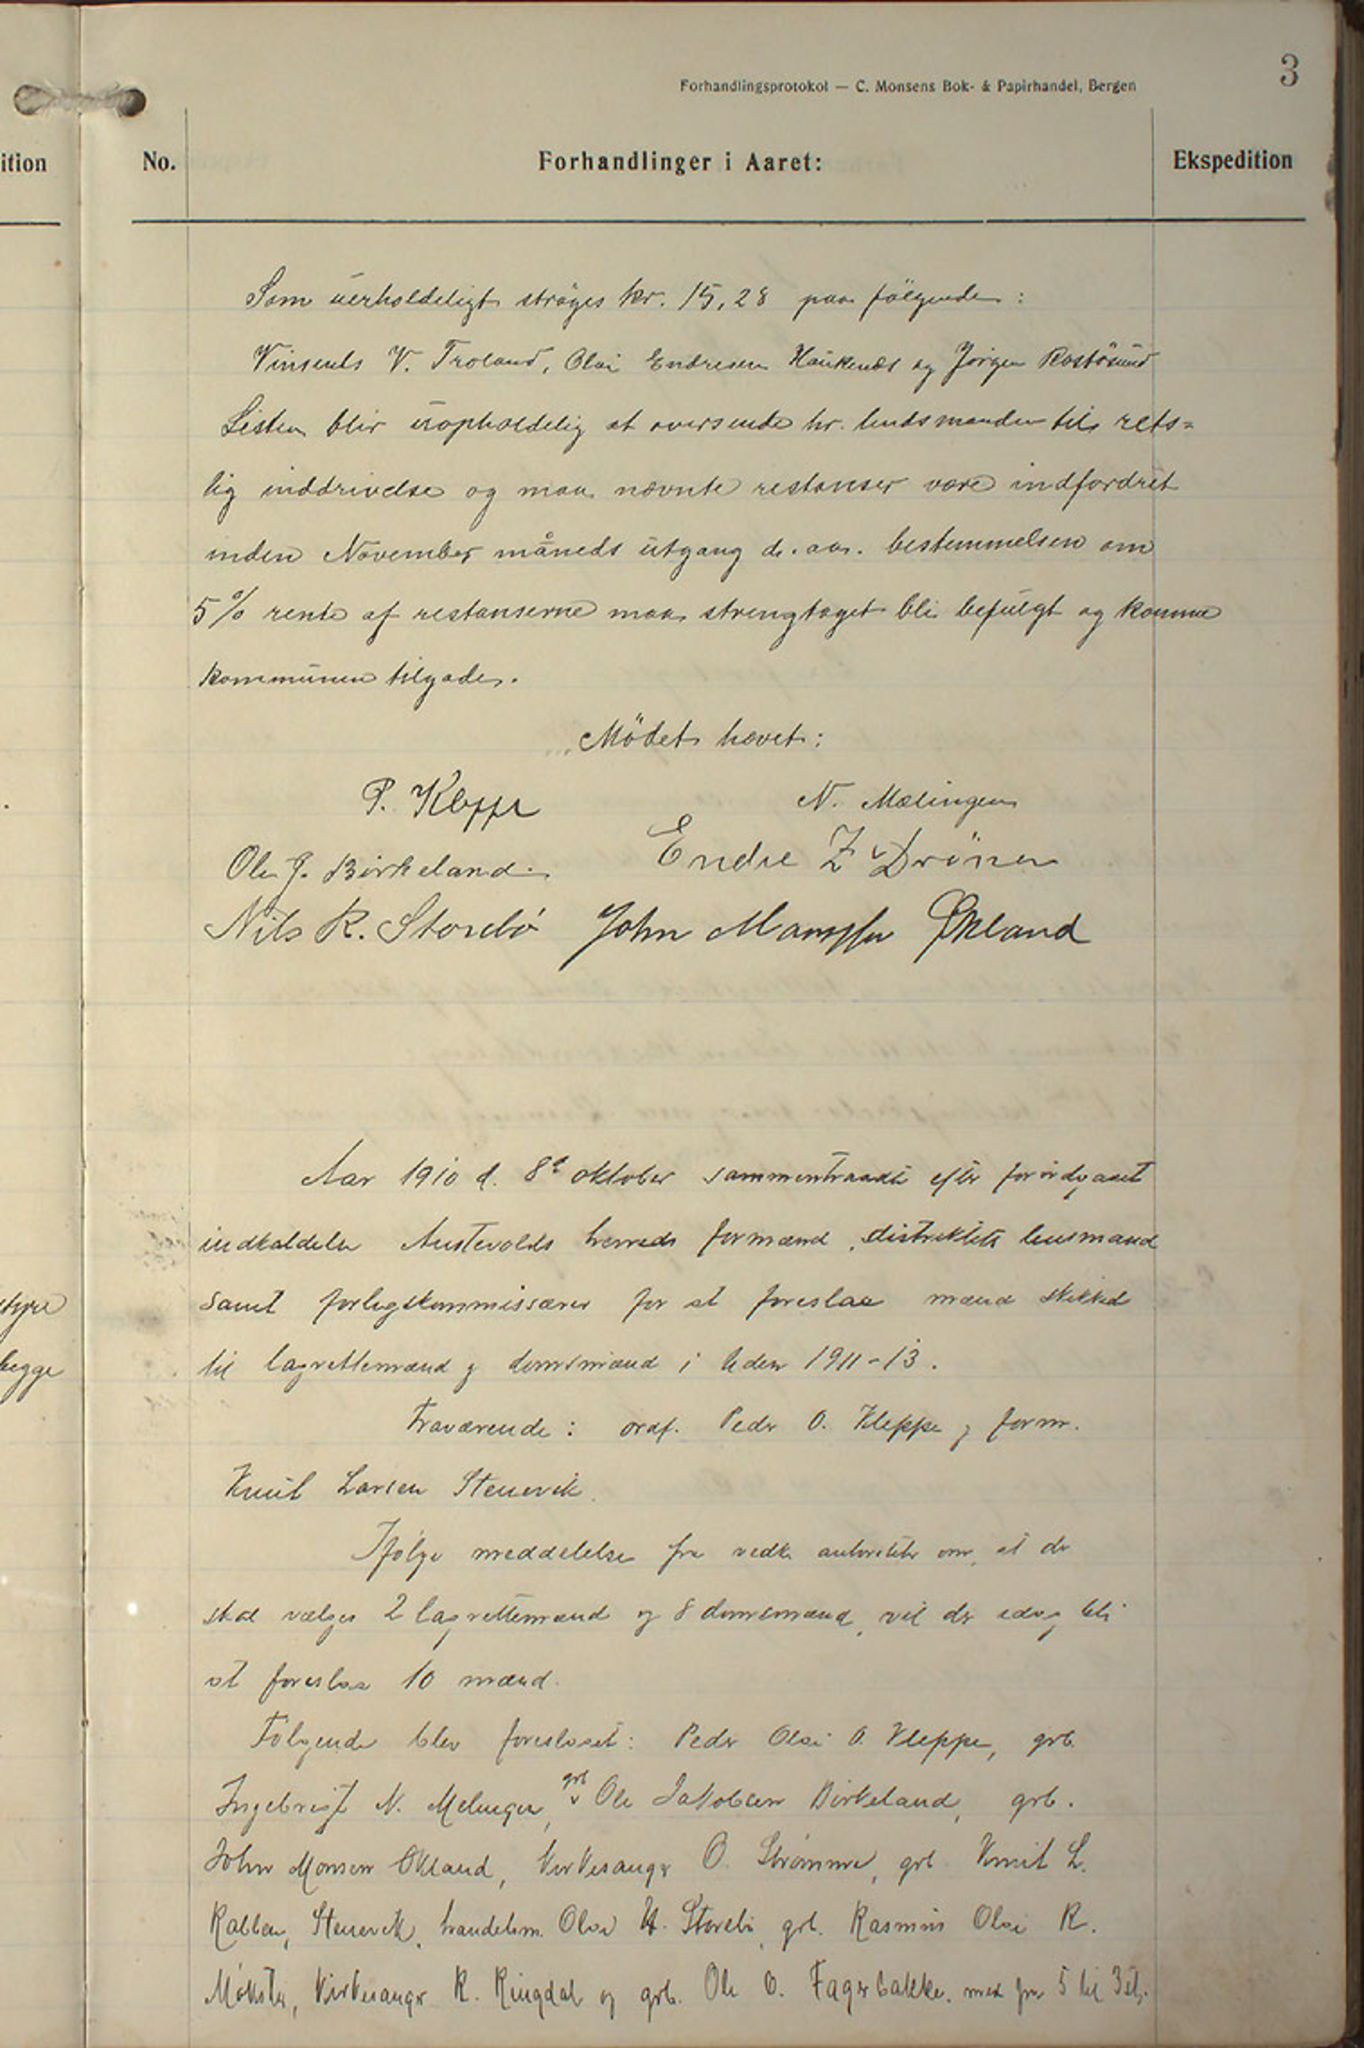 3
Forhandlingsprotokol — C. Monsens Bok- & Papirhandel, Bergen
ition No. Forhandlinger i Aaret: Ekspedition
Som uerholdeligt strøges kr. 15,28 paa følgende:
Vinsents V. Troland, Olai Endresen Haukenæs og Jørgen Rostøsund
Listen blir uopholdelig at oversende hr. lendsmanden til rets=
lig inddrivelse og maa nævnte restanser være indfordret
inden November måneds utgang d. aa. bestemmelsen om
5% rente af restanserne maa strengtaget bli befulgt og komme
kommunen tilgode.
Mödet hævet:
P. Kleppe N. Mælingen
Ole J. Birkeland Endre Z Drönen
Nils R. Storebø John Økland
Aar 1910 d. 8d oktober sammentraadte efter forutgaaet
indkaldelse Austevolds herreds formænd, distriktets lensmand
samt forligskommissærer for at foreslaa mænd skikked
til lagrettemænd og domsmænd i tiden 1911-13.
Fraværende: ordf. Peder O. Kleppe og form.
Knut Larsen Stenevik.
Ifølge meddelelse fra vedk. autoriteter om, at der
skal vælges 2 lagrettemænd og 8 domsmænd, vil der idag bli
at foreslaa 10 mænd.
Følgende blev foreslaaet: Peder Olai O. Kleppe, grb.
Ingebrigt N. Melingen, grb Ole Jakobsen Birkeland, grb.
John Monsen Økland, Kirkesanger O. Strømme, grb. Knut L.
Rabben, Stenevik, handelsm. Olai H. Storebø, grb. Rasmus Olai R.
Møkster, Kirkesanger R. Ringdal og grb. Ole O. Fagerbakke. med fra 5 til 3 st.
styre
begge